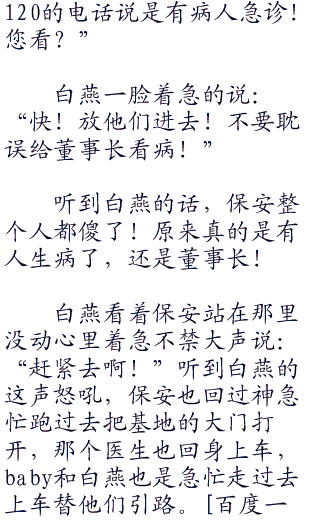 120的电话说是有病人急诊！
您看？”
白燕一脸着急的说：
“快！放他们进去！不要耽
误给董事长看病！”
听到白燕的话，保安整
个人都傻了！原来真的是有
人生病了，还是董事长！
白燕看着保安站在那里
没动心里着急不禁大声说：
“赶紧去啊！”听到白燕的
这声怒吼，保安也回过神急
忙跑过去把基地的大门打
开，那个医生也回身上车，
baby和白燕也是急忙走过去
上车替他们引路。[百度一